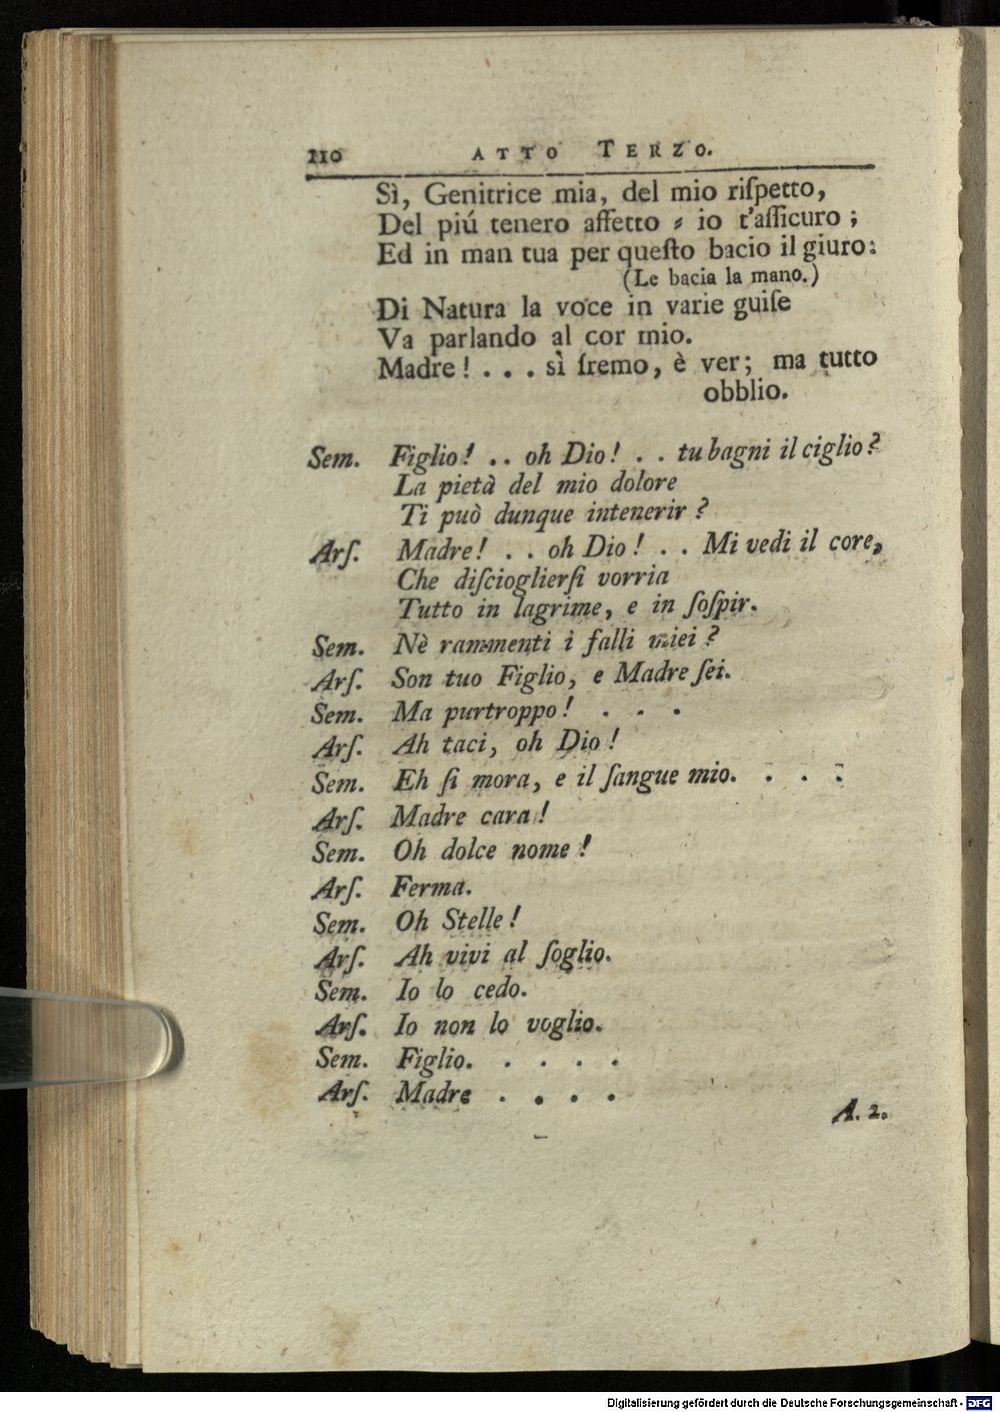 210 ATTO TERZO.
Sì, Genitrice mia, del mio riſpetto,
Del piú tenero affetto , io t'aſſicuro ;
Ed in man tua per queſto bacio il giuro:
(Le bacia la mano.)
Di Natura la voce in varie guiſe
Va parlando al cor mio.
Madre! . . . sì fremo, è ver; ma tutto
obblio.
Sem. Figlio! .. oh Dio! . . tu bagni il ciglio?
La pietà del mio dolore
Ti può dunque intenerir?
Arſ. Madre! . . oh Dio! . . Mi vedi il core,
Che diſcioglierſi vorria
Tutto in lagrime, e in ſoſpir.
Sem. Nè rammenti i falli miei?
Arſ. Son tuo Figlio, e Madre ſei.
Sem. Ma purtroppo! . . .
Arſ. Ah taci, oh Dio!
Sem. Eh ſi mora, e il ſangue mio. . . .
Arſ. Madre cara!
Sem. Oh dolce nome!
Arſ. Ferma.
Sem. Oh Stelle!
Arſ. Ah vivi al ſoglio.
Sem. Io lo cedo.
Arſ. Io non lo voglio.
Sem. Figlio. . . . .
Arſ. Madre . . . .
A. 2.
Digitalisierung gefördert durch die Deutsche Forschungsgemeinschaft - DFG